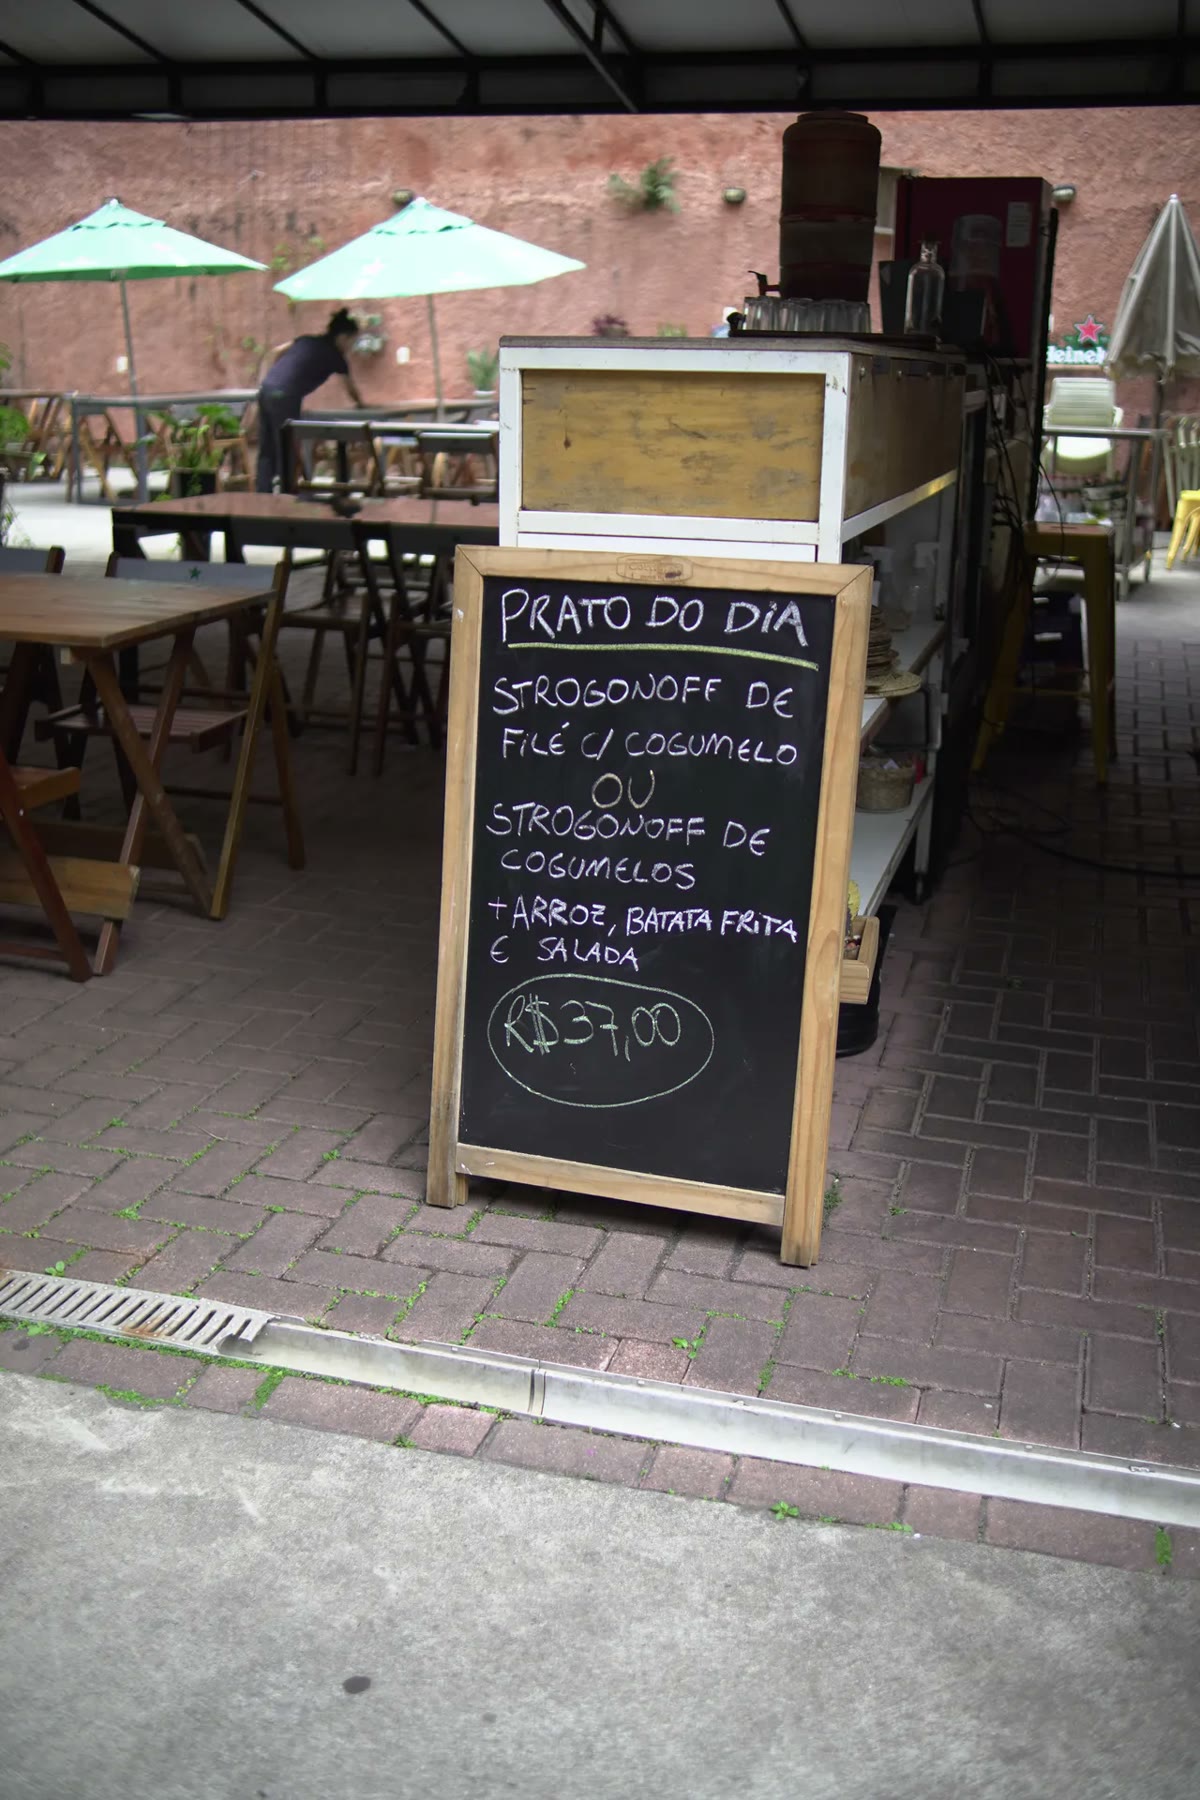 PRATO DO DIA
STROGONOFF DE
FILÉ C/ COGUMELO
OU
STROGONOFF DE
COGUMELOS
+ ARROZ, BATATA FRITA
E SALADA
R$37,00